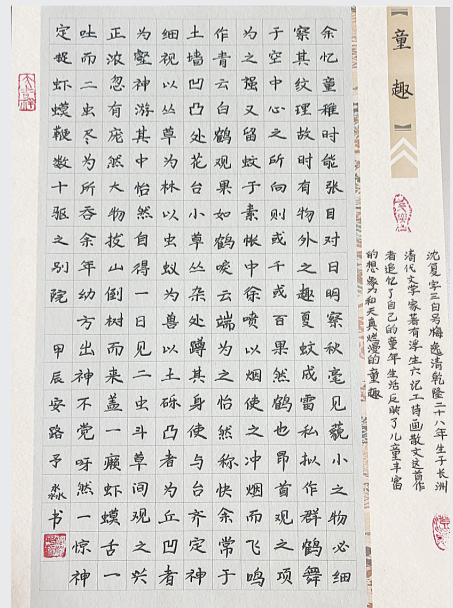 【童趣】
沈复字三白号梅逸清乾隆二十八年生于长洲
清代文学家著有浮生六记工诗画散文这首作
者追忆了自己的童年生活反映了儿童丰富
的想象力和天真烂漫的童趣
余忆童稚时能张目对日明察秋毫见藐小之物必细
察其纹理故时有物外之趣夏蚊成雷私拟作群鹤舞
于空中心之所向则或千或百果然鹤也昂首观之项
为之强又留蚊于素帐中徐喷以烟使之冲烟而飞鸣
作青云白鹤观果如鹤唳云端为之怡然称快余常于
土墙凹凸处花台小草丛杂处蹲其身使与台齐定神
细视以丛草为林以虫蚁为兽以土砾凸者为丘凹者
为壑神游其中怡然自得一日见二虫斗草间观之兴
正浓忽有庞然大物拔山倒树而来盖一癞虾蟆舌一
吐而二虫尽为所吞余年幼方出神不觉呀然一惊神
定捉虾蟆鞭数十驱之别院 甲辰安路予淼书